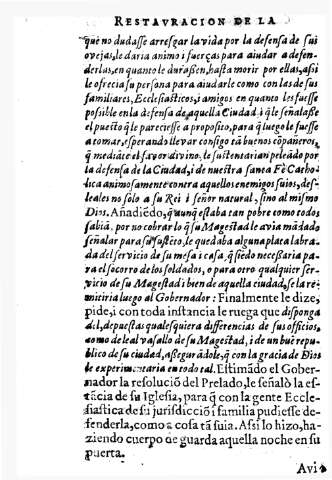 RESTAVRACION DE LA
que no dudasse arresgar la vida por la defensa de sus
ovejas, le daria animo i fuerças para aiudar a defen-
derlas, en quanto le durassen, hasta morir por ellas, assi
le ofrecia su persona para aiudarle como con las de sus
familiares, Ecclesiasticos, i amigos en quanto les fuesse
possible en la defensa de aquella Ciudad. i q̃ le señalasse
el puesto q̃ le pareciesse a proposito, para q̃ luego le fuesse
a tomar, esperando llevar consigo tã buenos cõpañeros,
q̃ mediãte el favor divino, le sustentarian peleãdo por
la defensa de la Ciudad, i de nuestra sancta Fè Catho-
lica animosamente contra aquellos enemigos suios, des-
leales no solo a su Rei i señor natural, sino al mismo
Dios. Añadiẽdo, q̃ aunq̃ estaba tan pobre como todos
sabiã. por no cobrar lo q̃ su Magestad le avia mãdado
señalar para su sustẽto, le quedaba alguna plata labra-
da del servicio de su mesa i casa, q̃ siẽdo necessaria pa-
ra el socorro de los soldados, o para otro qualquier ser-
vicio de su Magestad i bien de aquella ciudad, se la re-
mitiria luego al Gobernador: Finalmente le dize,
pide, i con toda instancia le ruega que disponga
dèl, depuestas qualesquiera differencias de sus officios,
como de leal vasallo de su Magestad, i de un buẽ repu-
blico de su ciudad, assegurãdole, q̃ con la gracia de Dios
le experimentaria en todo tal. Estimãdo el Gober-
nador la resoluciõ del Prelado, le señalò la es-
tãcia de su Iglesia, para q̃ con la gente Eccle-
siastica de su jurisdicciõ i familia pudiesse de-
fenderla, como a cosa tã suia. Assi lo hizo, ha-
ziendo cuerpo de guarda aquella noche en su
puerta.
Avi